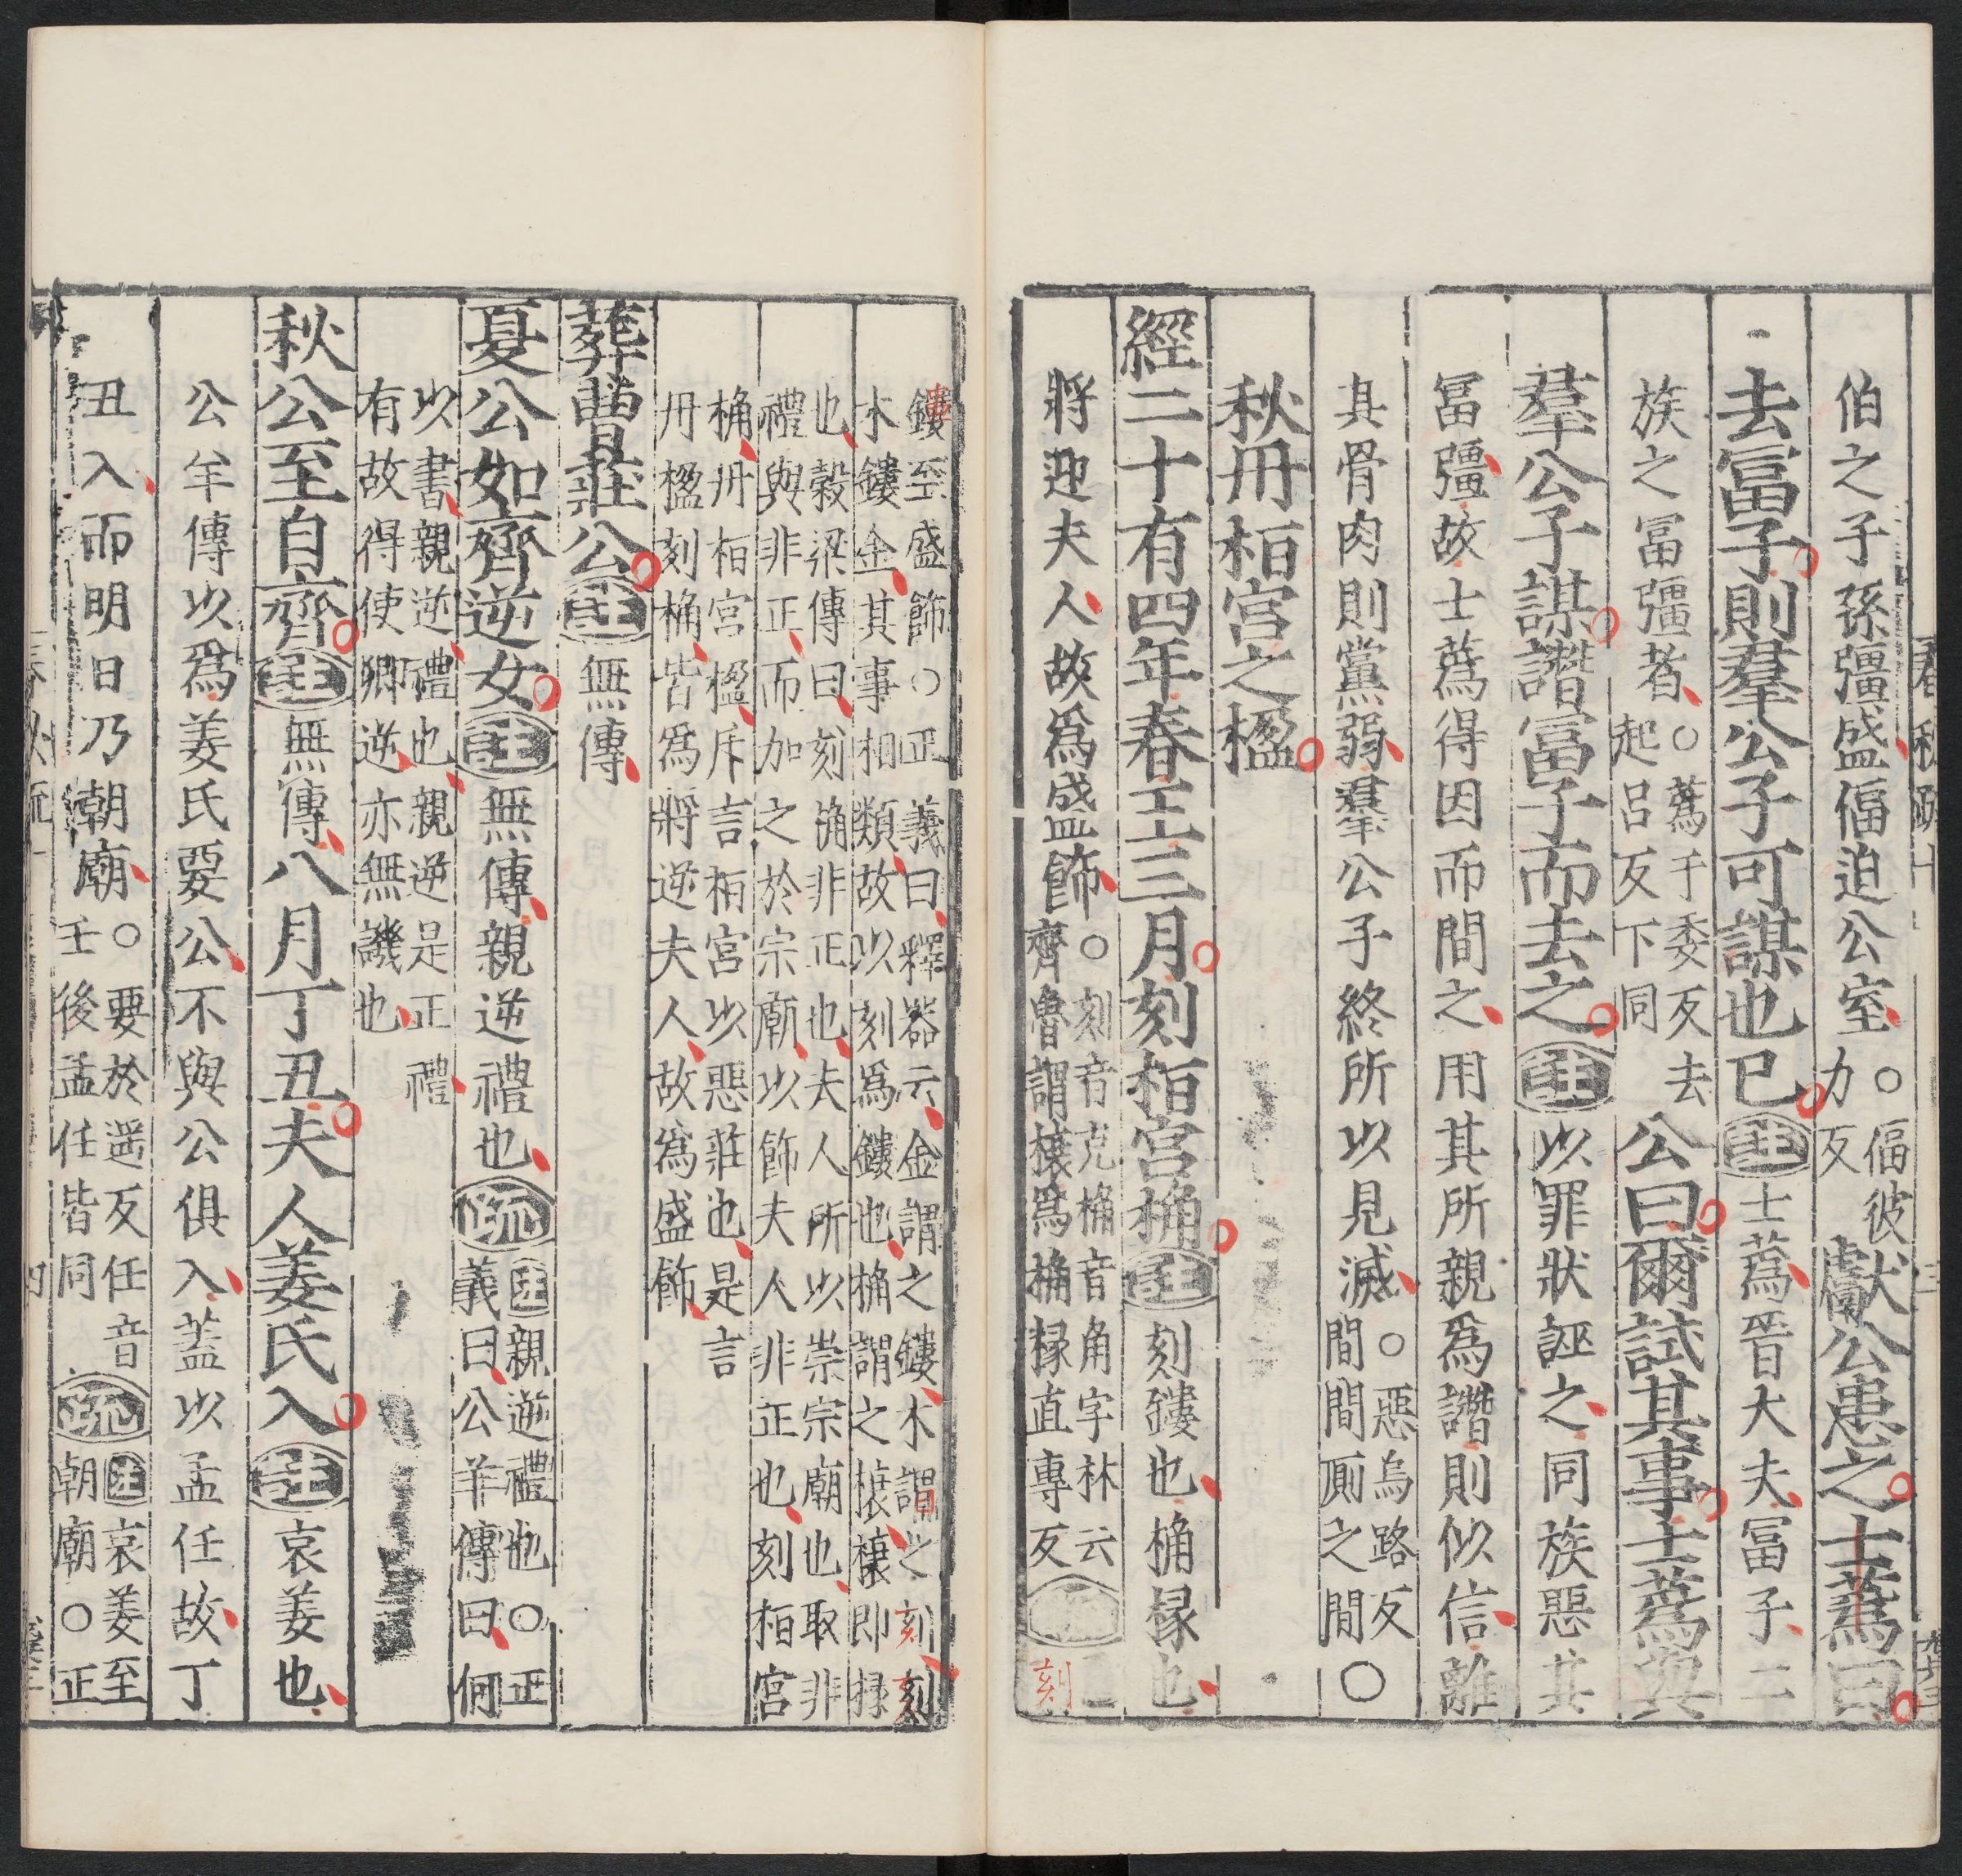 伯之子孫彊盛偪迫公室○偪彼力反獻公患之士蒍曰
去冨子則羣公子可謀也已註士蒍晉大夫冨子二
族之冨彊者○蒍于委反去起呂反下同公曰爾試其事士蒍與
羣公子謀譖冨子而去之註以罪狀誣之同族惡其
冨彊故士蒍得因而間之用其所親爲譖則似信離
其骨肉則黨弱羣公子終所以見滅○惡烏路反間間厠之間○
秋丹桓宫之楹
經二十有四年春王三月刻桓宫桷註刻鏤也桷椽也
將迎夫人故爲盛飾○刻音克桷音角字林云齊魯謂榱爲桷椽直專反疏刻
鏤至盛飾○正義曰釋器云金謂之鏤木謂之刻刻
木鏤金其事相類故以刻爲鏤也桷謂之榱榱即椽
也穀梁傳曰刻桷非正也夫人所以崇宗廟也取非
禮與非正而加之於宗廟以飾夫人非正也刻桓宮
桷丹桓宮楹斥言桓宮以惡莊也是言
丹楹刻桷皆爲將逆夫人故爲盛飾
葬曹莊公註無傳
夏公如齊逆女註無傳親逆禮也疏註親逆禮也○正義曰公羊傳曰何
以書親逆禮也親逆是正禮
有故得使卿逆亦無譏也
秋公至自齊註無傳八月丁丑夫人姜氏入註哀姜也
公羊傳以爲姜氏要公不與公俱入蓋以孟任故丁
丑入而明日乃朝廟○要於遥反任音壬後孟任皆同疏註哀姜至朝廟○正